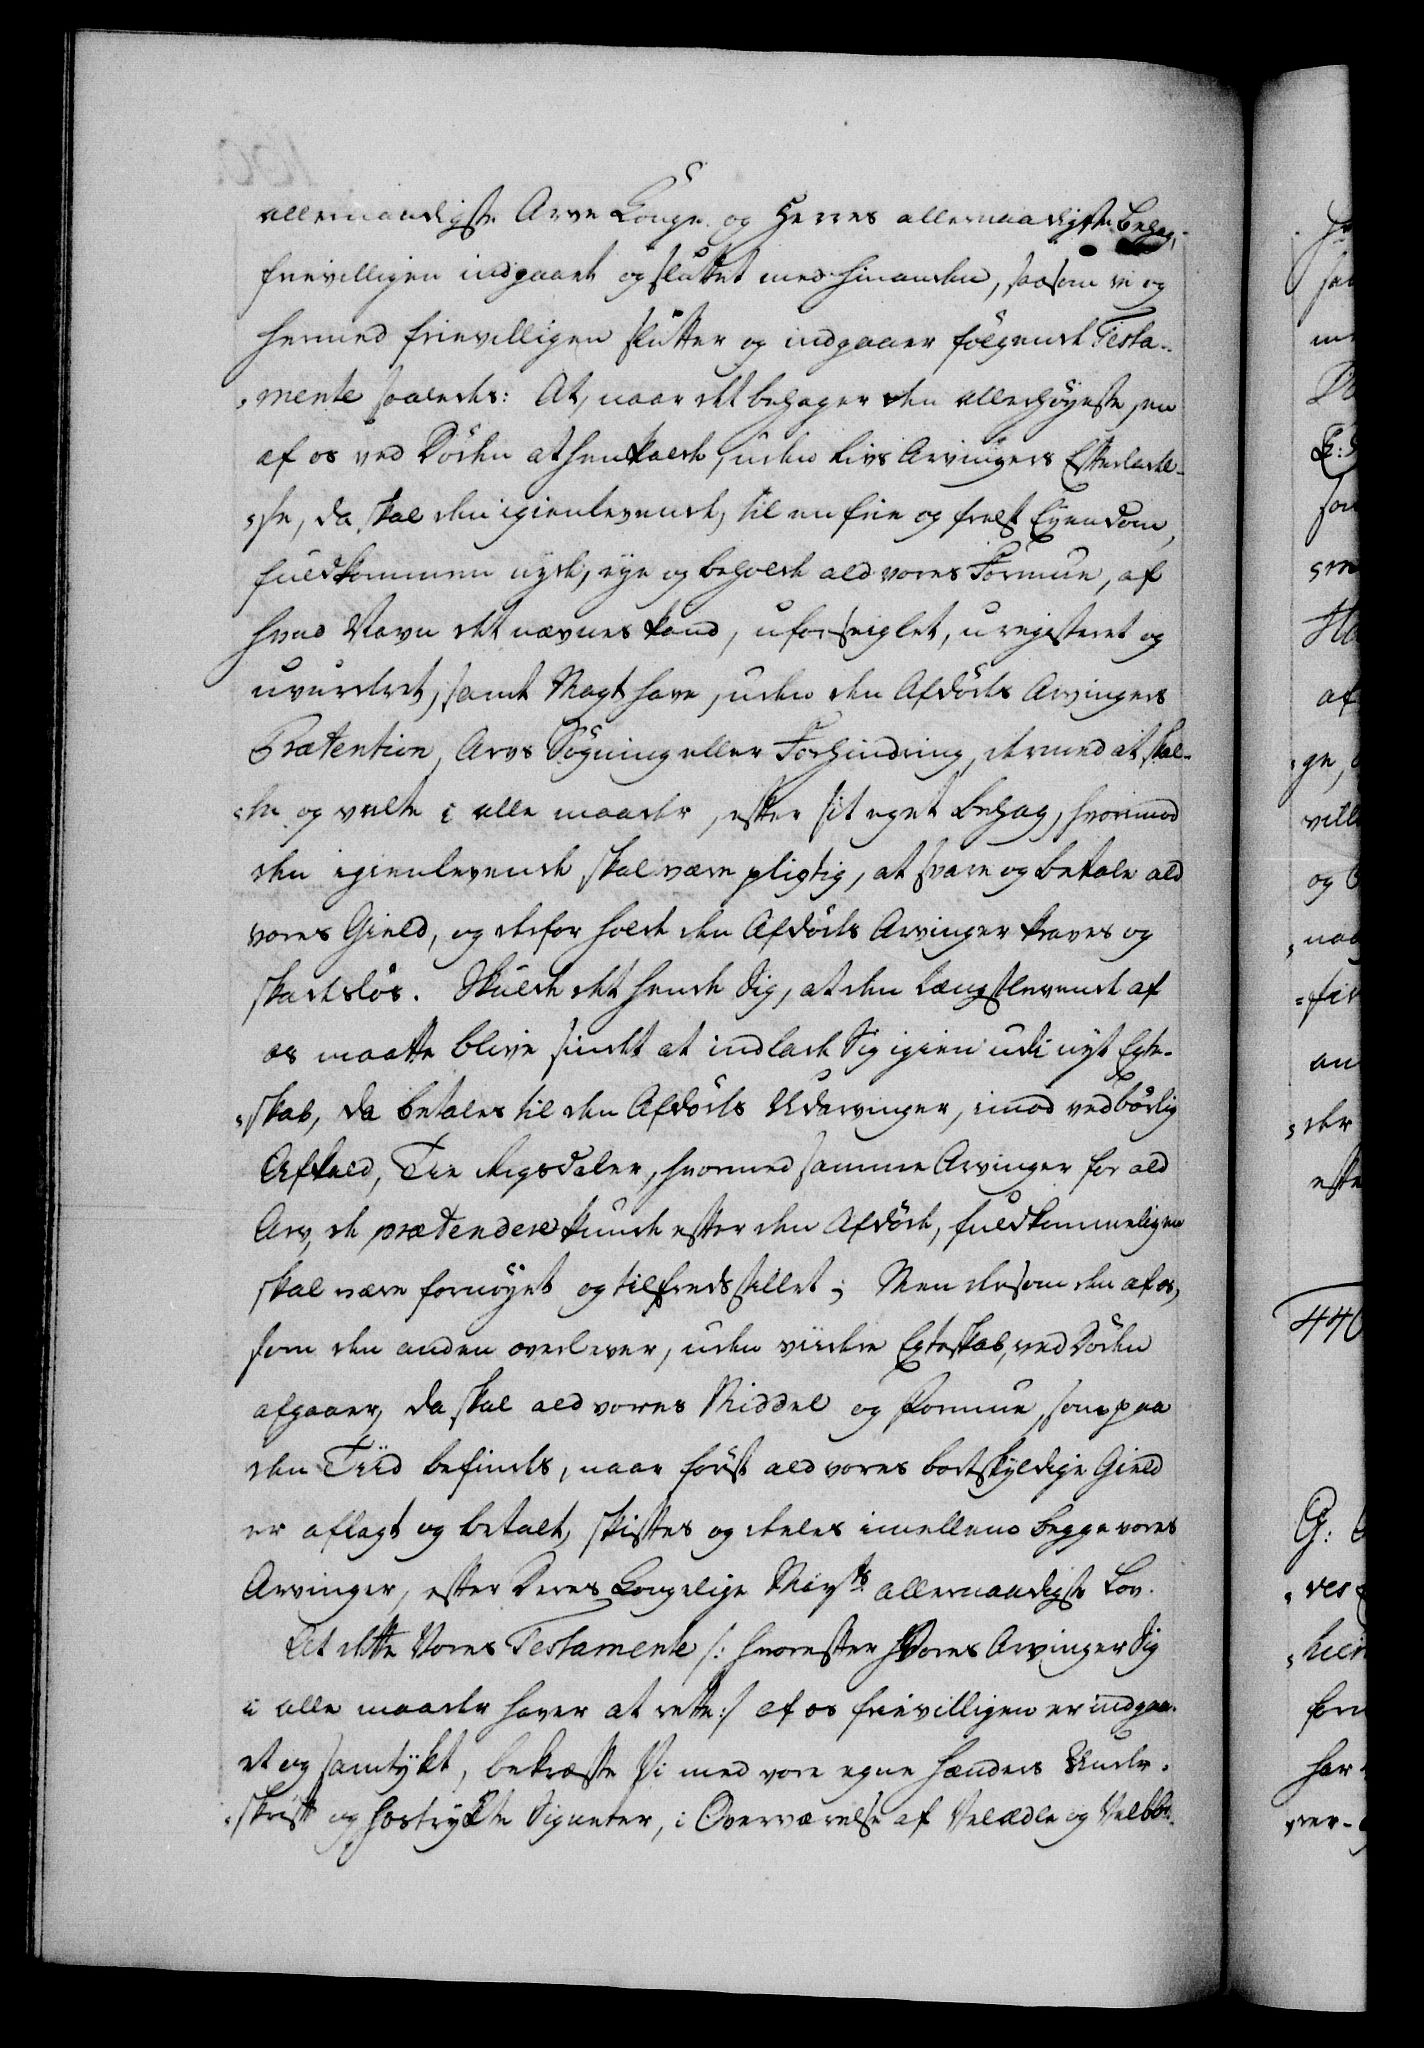 allernaadigste Arve Konge og Herres allernaadigste behag,
frievilligen indgaaet og sluttet med hinanden, saasom vi og
hermed frievilligen slutter og indgaaer følgende Testa-
mente saaledes: At, naar det behager den allerhöyeste, en
af os ved Döden at henkalde, uden Livs Arvingers Efterlade-
lse, da skal den igienlevende, til en frie og frelst Eyendom,
fuldkommen nyde, eye og beholde ald vores Formue, af
hvad Navn det nævnes kand, uforseiglet, uregisteret og
uvurderet, samt Magt have, uden den Afdödes Arvingers
Prætention, Arvs Søgning eller Forhindring, dermed at skal-
te og valte i alle maader, efter sit eget behag, hvorimod
den igienlevende skal være pligtig, at svare og betale ald
vores Gield, og derfor holde den Afdödes Arvinger kraves og
skadeslös. Skulde det hende sig, at den længstlevende af
os maatte blive sindet at indlade sig igien udi nyt Egte-
skab, da betales til den Afdödes Udarvinger, imod vedbörlig
Afkald, Tie Rigsdaler, hvormed samme Arvinger for ald
Arv, de prætendere kunde efter den Afdöde, fuldkommeligen
skal være fornöyet og tilfredsstillet; Men dersom den af os,
som den anden overlever, uden viidere Egteskab, ved Döden
afgaaer, da skal ald vores Middel og Formue, som paa
den Tiid befindes, naar först ald vores bortskyldige Gield
er aflagt og betalt, skiftes og deeles imellem begge vores
Arvinger, efter Deres Kongelige Mayts allernaadigste Lov.
At dette Vores Testamente /: hvorefter Vores Arvinger sig
i alle maader haver at rette :/ af os frievilligen er indgaa-
et og samtykt, bekræfte Vi med vore egne Hænders Under-
skrift og hostrykte Signeter, i Overværelse af Velædle og Velbr.